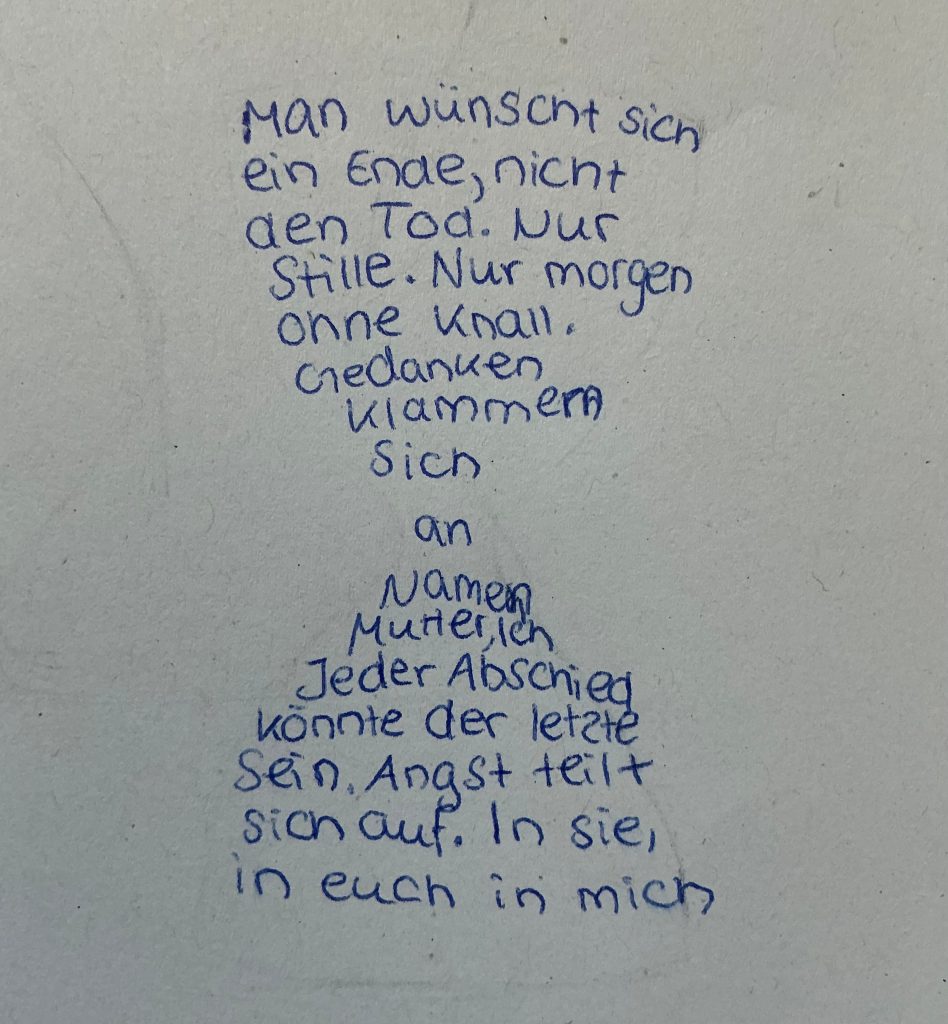 Man wünscht sich
ein Ende, nicht
den Tod. Nur
Stille. Nur morgen
ohne Knall.
Gedanken
klammern
sich
an
Namen
Mutter, ich
Jeder Abschied
könnte der letzte
sein. Angst teilt
sich auf. In sie,
in euch in mich